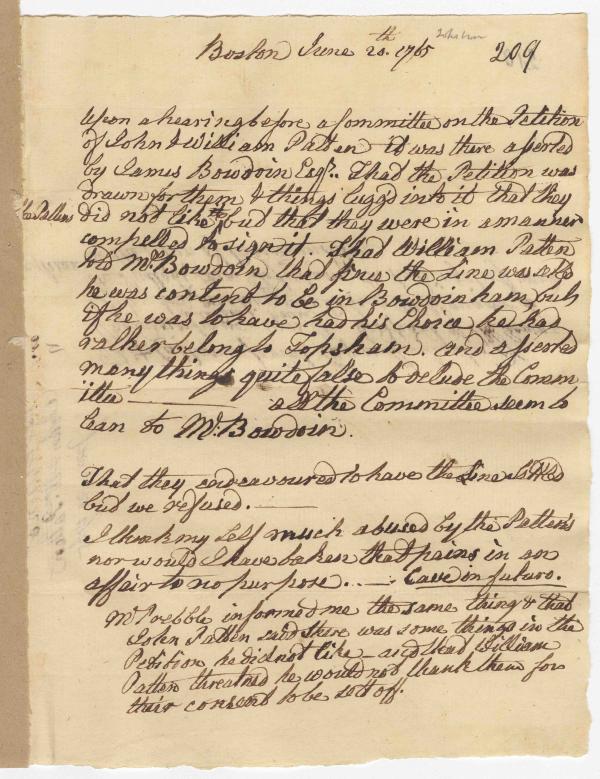 Topsham
Boston June 20.th 1765 209
Upon a hearing before a Committee on the Petition
of John & William Patten it was there asserted
by James Bowdoin Esqr. That the Petition was
drawn for them & things lugg'd into it that they
the Pattens
did not like, but that they were in a manner
compelled to sign it. That William Patten
told Mr. Bowdoin that since the Line was
he was content to be in Bowdoinham, but
if he was to have had his Choice he had
rather belong to Topsham. and asserted
many things quite false to delude the Comm
ittee ——— all the Committee seem to
lean to Mr. Bowdoin.
That they endeavoured to have the Line settled
but we refused. ———
I think my self much abused by the Pattens
nor would I have taken that pains in an
affair to no purpose. .... Cave in futuro.
Mr. Prebble informed me the same thing & that
John Patten said there was some things in the
Petition he did not like — and that William
Patten threatned he would not thank them for
their consent to be sott off.